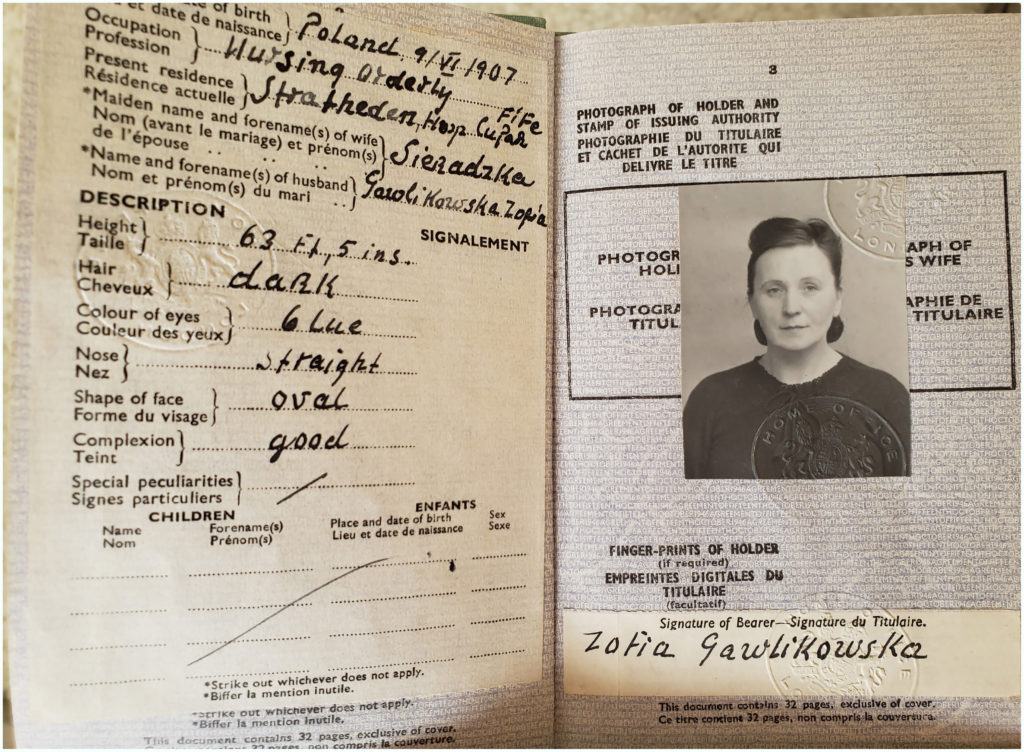 of birth
et date de naissance} Poland, 9/VI 1907
Occupation
Profession } Nursing orderly
Present residence
Résidence actuelle } Stratheden, Hosp. Cupar Fife
*Maiden name and forename(s) of wife
Nom (avant le mariage) et prénom(s)
de l'épouse .. .. .. } Sieradzka
*Name and forename(s) of husband
Nom et prénom(s) du mari .. } Gawlikowska Zofia
DESCRIPTION
SIGNALEMENT
Height
Taille } 63 Ft, 5 ins.
Hair
Cheveux } daRK
Colour of eyes
Couleur des yeux } blue
Nose
Nez } straight
Shape of face
Forme du visage } oval
Complexion
Teint } good
Special peculiarities
Signes particuliers } /
CHILDREN ENFANTS
Name Forename(s) Place and date of birth Sex
Nom Prénom(s) Lieu et date de naissance Sexe
*Strike out whichever does not apply.
*Biffer la mention inutile.
*Strike out whichever does not apply.
*Biffer la mention inutile.
This document contains 32 pages, exclusive of cover.
contient 32 pages, non compris la couverture.
3
PHOTOGRAPH OF HOLDER AND
STAMP OF ISSUING AUTHORITY
PHOTOGRAPHIE DU TITULAIRE
ET CACHET DE L'AUTORITE QUI
DELIVRE LE TITRE
PHOTOGR APH OF
HOL S WIFE
PHOTOGRA APHIE DE
TITUL TITULAIRE
LON
HOME OFFICE
FINGER-PRINTS OF HOLDER
(if required)
EMPREINTES DIGITALES DU
TITULAIRE
(facultatif)
Signature of Bearer—Signature du Titulaire.
Zofia Gawlikowska
This document contains 32 pages, exclusive of cover.
Ce titre contient 32 pages, non compris la couverture.